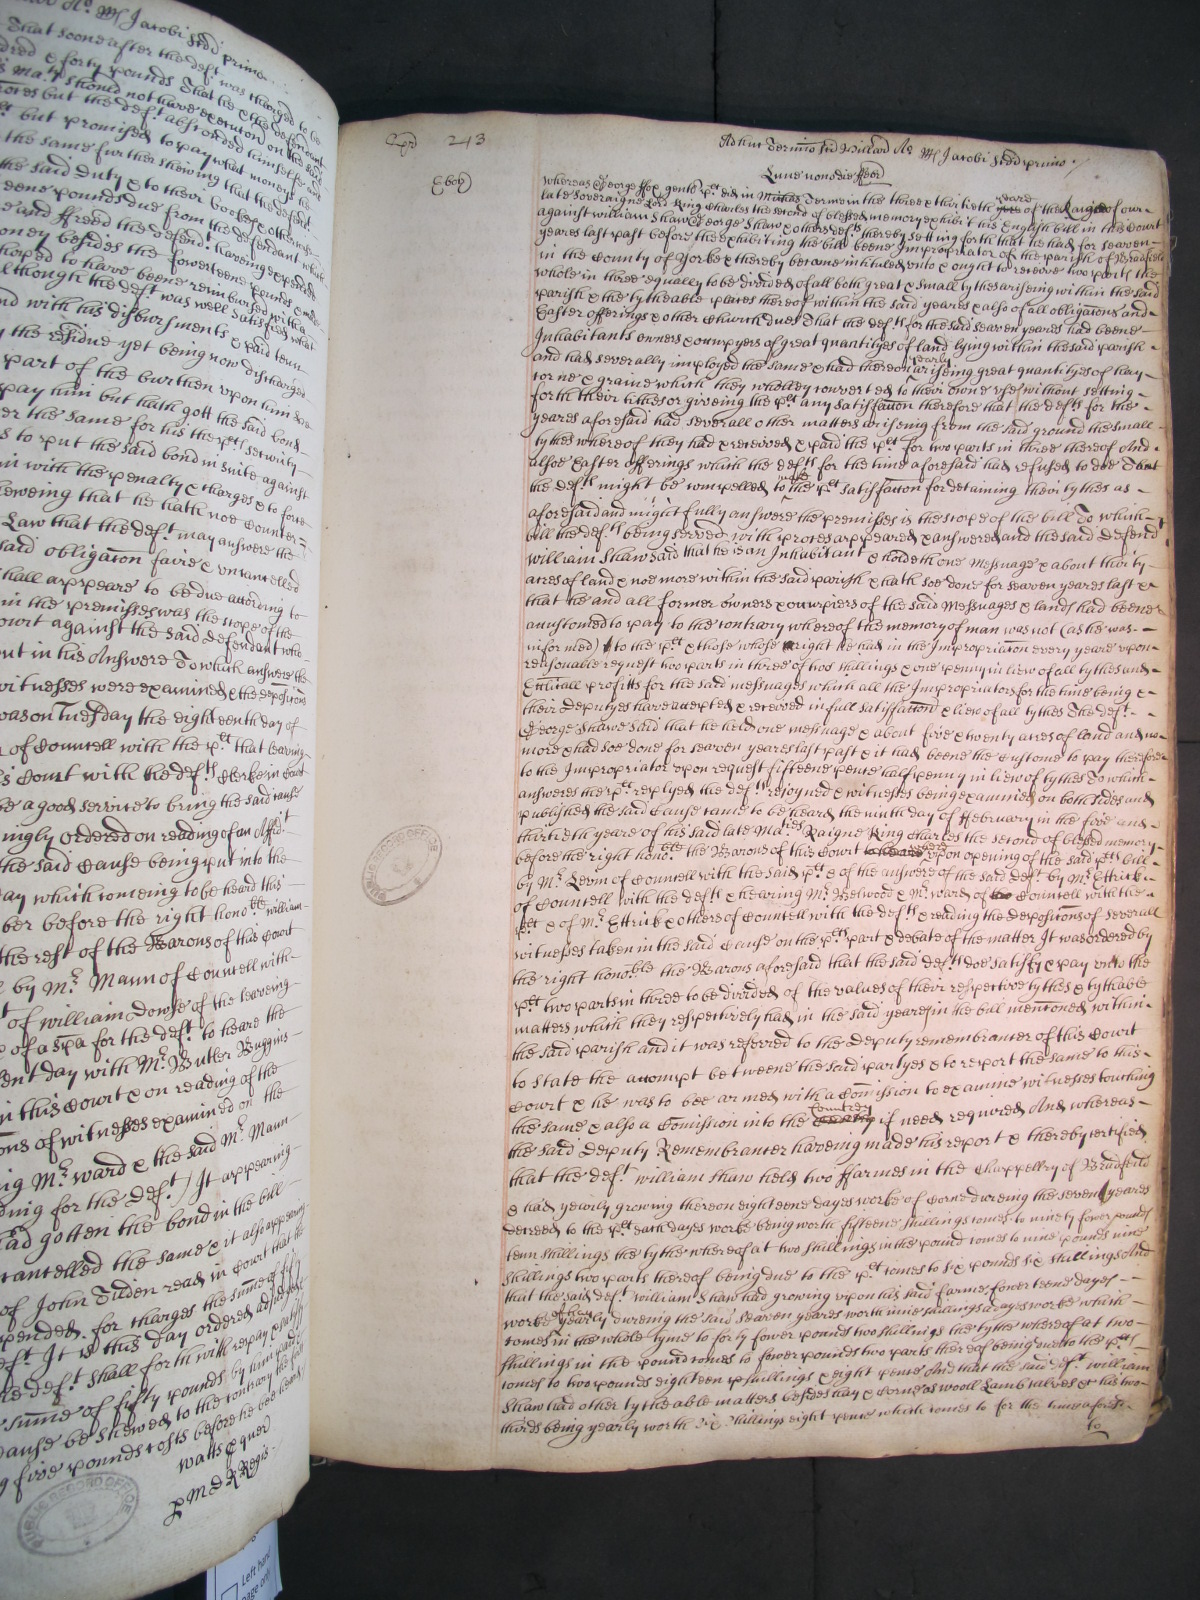 Jacobi scdi primo
That soone after the def.t was charged to be
& forty pounds That he & the defendant
Ma.ty should not have execucon on the said
but the def.t absconded himselfe &
but promised to pay what moneys he
the same further shewing that the defend.t
the said duty & to their booke & otherwise
pounds due from the defendant
and ffreed the defend.t haveing expended
besides the fowerteene pounds &
to have beene reimbursed with a
though the def.t was well satisfied what
with his disbursments & paid tenn
the residue yet being now discharged
part of the burthen upon him
pay him but hath gott the said bond
the same for his the p.lts security
to put the said bond in suite against
with the penalty & charges & to force
sheweing that he hath noe Counter =
Law that the def.t may answere the
said obligacon faire & uncancelled
shall appeare to be due according to
in the premisses was the scope of the
Court against the said defendant who
in his Answere To which answere the
witnesses were examined & the deposicons
was on Tuesday the eighteenth day of
of Councell with the p.lt that
Court with the def.ts Clerke in Court
be a good service to bring the said cause
ingly ordered on reading of an Affid.t
the said Cause being put into the
day which comeing to be heard this
ber before the right hono.ble William
the rest of the Barons of this Court
by M.r Mann of Councell with
of William Dowse of the leaveing
of a spa for the def.t to heare the
ent day with M.r Butler Buggins
in this Court & on reading of the
ons of witnesses examined on the
M.r Ward & the said M.r Mann
ing for the def.t) It appearing
had gotten the bond in the bill
cancelled the same & it also appearing
of John Tilden read in Court that the
expended for charges the summe of
It is this day ordered
the def.t shall forthwith repay
summe of fifty pounds by him paid
cause be shewed to the contrary
five pounds costs before he bee heard
Watts p quer
p M d R Regis
PUBLIC RECORD OFFICE
Left hand
page only
243
(Ebor)
Adhuc Termino Sci Hillarij A.o R Jacobi Scdi primo
Lune nono die ffebr
Whereas George ffox gent p.lt did in Michas Terme in the three & thirtieth yeare of the Raigne of our
late Soveraigne Lord King Charles the second of blessed memory exhibit his English bill in this Court
against William Shaw George Shaw & others def.ts thereby setting forth that he had for seaven
yeares last past before the exhibiting the bill beene Impropriator of the parish of Bradfeild
in the County of Yorke & thereby became intituled unto & ought to receive two parts the
whole in three equally to be divided of all both great & small tythes ariseing within the said
parish & the tytheable places thereof within the said yeares & also of all obligacons and
Easter offerings & other Church dues That the def.ts for the said seaven yeares had beene
Inhabitants owners & occupyers of great quantityes of land lying within the said parish
and had severally imployed the same & had thereon yearly ariseing great quantityes of hay
corne & graine which they wholley converted to their owne uses without setting
forth their tithes or giveing the p.lt any satisfaccon therefore that the def.ts for the
yeares aforesaid had severall other matters ariseing from the said ground the small
tythes whereof they had & received & paid the p.lt for two parts in three thereof And
alsoe Easter offerings which the def.ts for the time aforesaid had refused to doe That
the def.ts might be compelled to make the p.lt satisfaccon for detaining their tythes as
aforesaid and might fully answere the premisses is the scope of the bill To which
bill the def.ts being served with proces appeared & answered and the said defend
William Shaw said that he is an Inhabitant & holdeth one Messuage & about thirty
acres of land & noe more within the said parish & hath soe done for seaven yeares last &
that he and all former owners & occupiers of the said Messuages & lands had beene
accustomed to pay to the contrary whereof the memory of man was not (as he was
informed) to the p.lt & those whose right he had in the Impropriacon every yeare upon
reasonable request two parts in three of two shillings & one penny in lieu of all tythes and
Titheall profitts for the said messuages which all the Impropriators for the time being &
their deputyes have accepted & received in full satisfaccon & lieu of all tythes The def.t
George Shawe said that he held one messuage & about five & twenty acres of land and no
more & had soe done for seaven yeares last past & it had beene the Custome to pay therefore
to the Impropriator upon request fifteene pence halfpenny in lieu of tythes To which
answeres the p.lt replyed the def.ts rejoyned & witnesses being examined on both sides and
published the said Cause came to be heard the ninth day of ffebruary in the five and
thirtieth yeare of his said late Ma.ties Raigne King Charles the second of blessed memory
before the right hono.ble the Barons of this Court where upon opening of the said p.lts bill
by M.r Levin of Councell with the said p.lt & of the answere of the said def.t by M.r Ettrick
of Councell with the def.ts & hearing M.r Belwood & M.r Ward of Councell with the
p.lt & of M.r Ettrick & others of Councell with the def.ts & reading the deposicons of severall
witnesses taken in the said Cause on the p.lts part & debate of the matter It was ordered by
the right hono.ble the Barons aforesaid that the said def.ts doe satisfy & pay unto the
p.lt two parts in three to be divided of the values of their respective tythes & tythable
matters which they respectively had in the said yeares in the bill mentioned within
the said parish and it was referred to the Deputy remembrancer of this Court
to state the accompt betweene the said partyes & to report the same to this
Court & he was to bee armed with a Comission to examine witnesses touching
the same & also a Comission into the Countrey if need required And whereas
the said Deputy Remembrancer haveing made his report & thereby certified
that the def.t William Shaw held two ffarmes in the Chappellry of Bradfeild
& had yearly growing thereon eighteene dayes worke of Corne dureing the seven yeares
decreed to the p.lt each dayes worke being worth fifteene shillings comes to ninety fower pounds
tenn shillings the tythe whereof at two shillings in the pound comes to nine pounds nine
shillings two parts thereof being due to the p.lt comes to six pounds six shillings And
that the said def.t William Shaw had growing upon his said farme fowerteene dayes
worke of hay yearly dureing the said seaven yeares worth nine shillings a dayes worke which
comes in the whole tyme to forty fower pounds two shillings the tythe whereof at two
shillings in the pound comes to fower pounds two parts thereof being due to the p.lt
comes to two pounds eighteen shillings & eight pence And that the said def.t William
Shaw had other tytheable matters besides hay & Corne as wooll Lamb calves & his two
thirds being yearly worth six shillings eight pence which comes to for the time aforesd
to
PUBLIC RECORD OFFICE